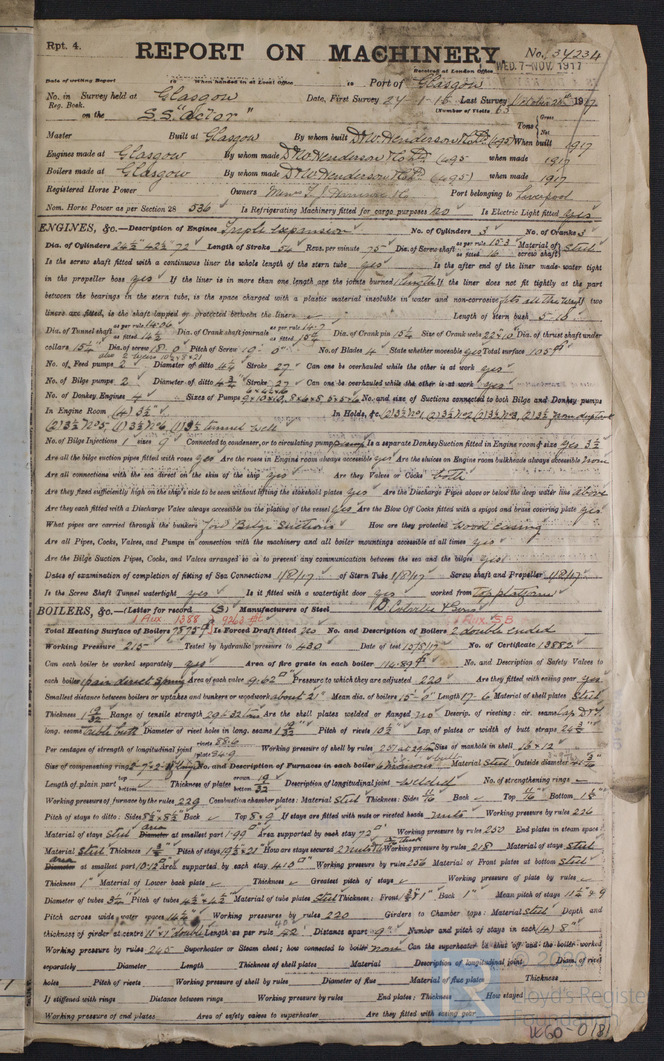 Rpt. 4.
REPORT ON MACHINERY
No. 37234
WED. 7-NOV. 1917
Date of writing Report 19 When handed in at Local Office 19 Port of Glasgow
Received at London Office
No. in Survey held at Glasgow Date, First Survey 24-1-16 Last Survey 1917
Reg. Book. (Number of Visits 63
on the S.S. "Actor"
Master Built at Glasgow By whom built D & W. Henderson & Co Ld (495) When built 1917
Tons Gross Net
Engines made at Glasgow By whom made D & W. Henderson & Co Ld (495 when made 1917
Boilers made at Glasgow By whom made D & W. Henderson & Co Ld (495) when made 1917
Registered Horse Power Owners Port belonging to Liverpool
Nom. Horse Power as per Section 28 536 Is Refrigerating Machinery fitted for cargo purposes No Is Electric Light fitted Yes
ENGINES, &c.—Description of Engines Triple expansion No. of Cylinders 3 No. of Cranks 3
Dia. of Cylinders 26½ 42½ 72 Length of Stroke 54 Revs. per minute 75 Dia. of Screw shaft as per rule 15.3 as fitted 16 Material of screw shaft Steel
Is the screw shaft fitted with a continuous liner the whole length of the stern tube yes Is the after end of the liner made water tight
in the propeller boss yes If the liner is in more than one length are the joints burned 1 length If the liner does not fit tightly at the part
between the bearings in the stern tube, is the space charged with a plastic material insoluble in water and non-corrosive fits all the way If two
liners are fitted, is the shaft lapped or protected between the liners Length of stern bush 5-10
Dia. of Tunnel shaft as per rule 14.06 as fitted 14½ Dia. of Crank shaft journals as per rule 14.7 as fitted 15¼ Dia. of Crank pin 15¼ Size of Crank webs 22×10 Dia. of thrust shaft under
collars 15¼ Dia. of screw 18-0 Pitch of Screw 19-0 No. of Blades 4 State whether moveable yes Total surface 105 ft
No. of Feed pumps 2 Diameter of ditto 4½ Stroke 27 Can one be overhauled while the other is at work yes
No. of Bilge pumps 2 Diameter of ditto 4¾ Stroke 27 Can one be overhauled while the other is at work yes
No. of Donkey Engines 4 Sizes of Pumps No. and size of Suctions connected to both Bilge and Donkey pumps
In Engine Room (4) 3½" In Holds, &c. (2) 3½ No1, (2) 3½ No2, (2) 3½ No3, (2) 3½ from duplicate
(2) 3½ No5, (1) 3½ No6, (1) 3½ tunnel well
No. of Bilge Injections 1 sizes 9 Connected to condenser, or to circulating pump Is a separate Donkey Suction fitted in Engine room & size yes 3½
Are all the bilge suction pipes fitted with roses yes Are the roses in Engine room always accessible yes Are the sluices on Engine room bulkheads always accessible None
Are all connections with the sea direct on the skin of the ship yes Are they Valves or Cocks both
Are they fixed sufficiently high on the ship's side to be seen without lifting the stokehold plates yes Are the Discharge Pipes above or below the deep water line above
Are they each fitted with a Discharge Valve always accessible on the plating of the vessel yes Are the Blow Off Cocks fitted with a spigot and brass covering plate yes
What pipes are carried through the bunkers Ford Bilge Suctions How are they protected Wood casing
Are all Pipes, Cocks, Valves, and Pumps in connection with the machinery and all boiler mountings accessible at all times yes
Are the Bilge Suction Pipes, Cocks, and Valves arranged so as to prevent any communication between the sea and the bilges yes
Dates of examination of completion of fitting of Sea Connections 1/8/17 of Stern Tube 1/8/17 Screw shaft and Propeller 1/8/17
Is the Screw Shaft Tunnel watertight yes Is it fitted with a watertight door yes worked from Top platform
BOILERS, &c.—(Letter for record (S) Manufacturers of Steel D. Colville & Sons
1 Aux 1388 = 9263 1 Aux. SB
Total Heating Surface of Boilers 7875 Is Forced Draft fitted No No. and Description of Boilers 2 double ended
Working Pressure 215 Tested by hydraulic pressure to 430 Date of test 10/5/17 No. of Certificate 13882
Can each boiler be worked separately yes Area of fire grate in each boiler 116.89 ft No. and Description of Safety Valves to
each boiler 1 pair direct spring Area of each valve 9.62 Pressure to which they are adjusted 220 Are they fitted with easing gear Yes
Smallest distance between boilers or uptakes and bunkers or woodwork about 21" Mean dia. of boilers 15-0 Length 17-6 Material of shell plates Steel
Thickness Range of tensile strength 29½-32½ tons Are the shell plates welded or flanged no Descrip. of riveting: cir. seams lap D.R.
long. seams Diameter of rivet holes in long. seams Pitch of rivets 10½ Lap of plates or width of butt straps
Per centages of strength of longitudinal joint rivets 88.6 plate 84.9 Working pressure of shell by rules 237 Size of manhole in shell 16×12
Size of compensating ring No. and Description of Furnaces in each boiler 6 Material Steel Outside diameter
Length of plain part top bottom Thickness of plates crown bottom 19/32 Description of longitudinal joint welded No. of strengthening rings
Working pressure of furnace by the rules 229 Combustion chamber plates: Material Steel Thickness: Sides 11/16 Back Top 11/16 Bottom
Pitch of stays to ditto: Sides 8½×8½ Back Top 8×9 If stays are fitted with nuts or riveted heads nuts Working pressure by rules 226
Material of stays Steel area Diameter at smallest part 1.99 Area supported by each stay 72 Working pressure by rules 250 End plates in steam space:
Material Steel Thickness Pitch of stays 19½×21 How are stays secured Working pressure by rules 218 Material of stays Steel
area Diameter at smallest part 10.12 Area supported by each stay 410 Working pressure by rules 256 Material of Front plates at bottom Steel
Thickness 1" Material of Lower back plate Thickness Greatest pitch of stays Working pressure of plate by rules
Diameter of tubes Pitch of tubes Material of tube plates Steel Thickness: Front Back 1" Mean pitch of stays
Pitch across wide water spaces 14½ Working pressures by rules 220 Girders to Chamber tops: Material Steel Depth and
thickness of girder at centre Length as per rule Distance apart 9" Number and pitch of stays in each (4) 8"
Working pressure by rules 245 Superheater or Steam chest; how connected to boiler None Can the superheater be shut off and the boiler worked
separately Diameter Length Thickness of shell plates Material Description of longitudinal joint Diam. of rivet
holes Pitch of rivets Working pressure of shell by rules Diameter of flue Material of flue plates Thickness
If stiffened with rings Distance between rings Working pressure by rules End plates: Thickness How stayed
Working pressure of end plates Area of safety valves to superheater Are they fitted with easing gear
Lloyd's Register
Foundation
W60-0181